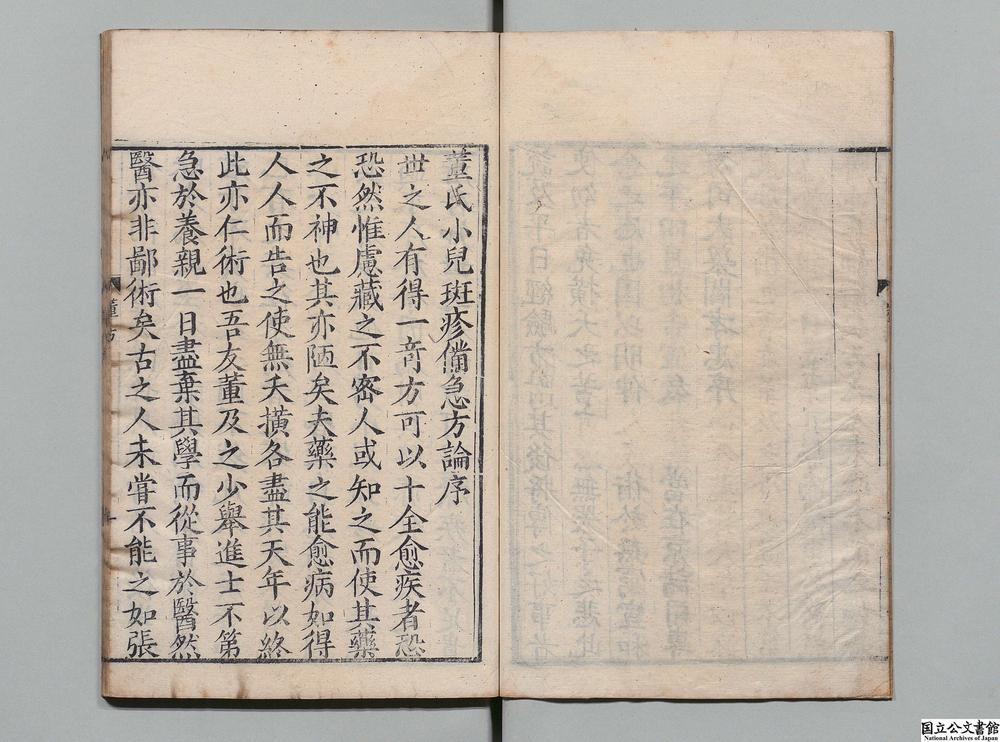 董氏小兒斑疹備急方論序
世之人有得一竒方可以十全愈疾者恐
恐然惟慮藏之不密人或知之而使其藥
之不神也其亦陋矣夫藥之能愈病如得
人人而告之使無夭橫各盡其天年以終
此亦仁術也吾友董及之少舉進士不第
急於養親一日盡棄其學而從事於醫然
醫亦非鄙術矣古之人未嘗不能之如張
国立公文書館
National Archives of Japan